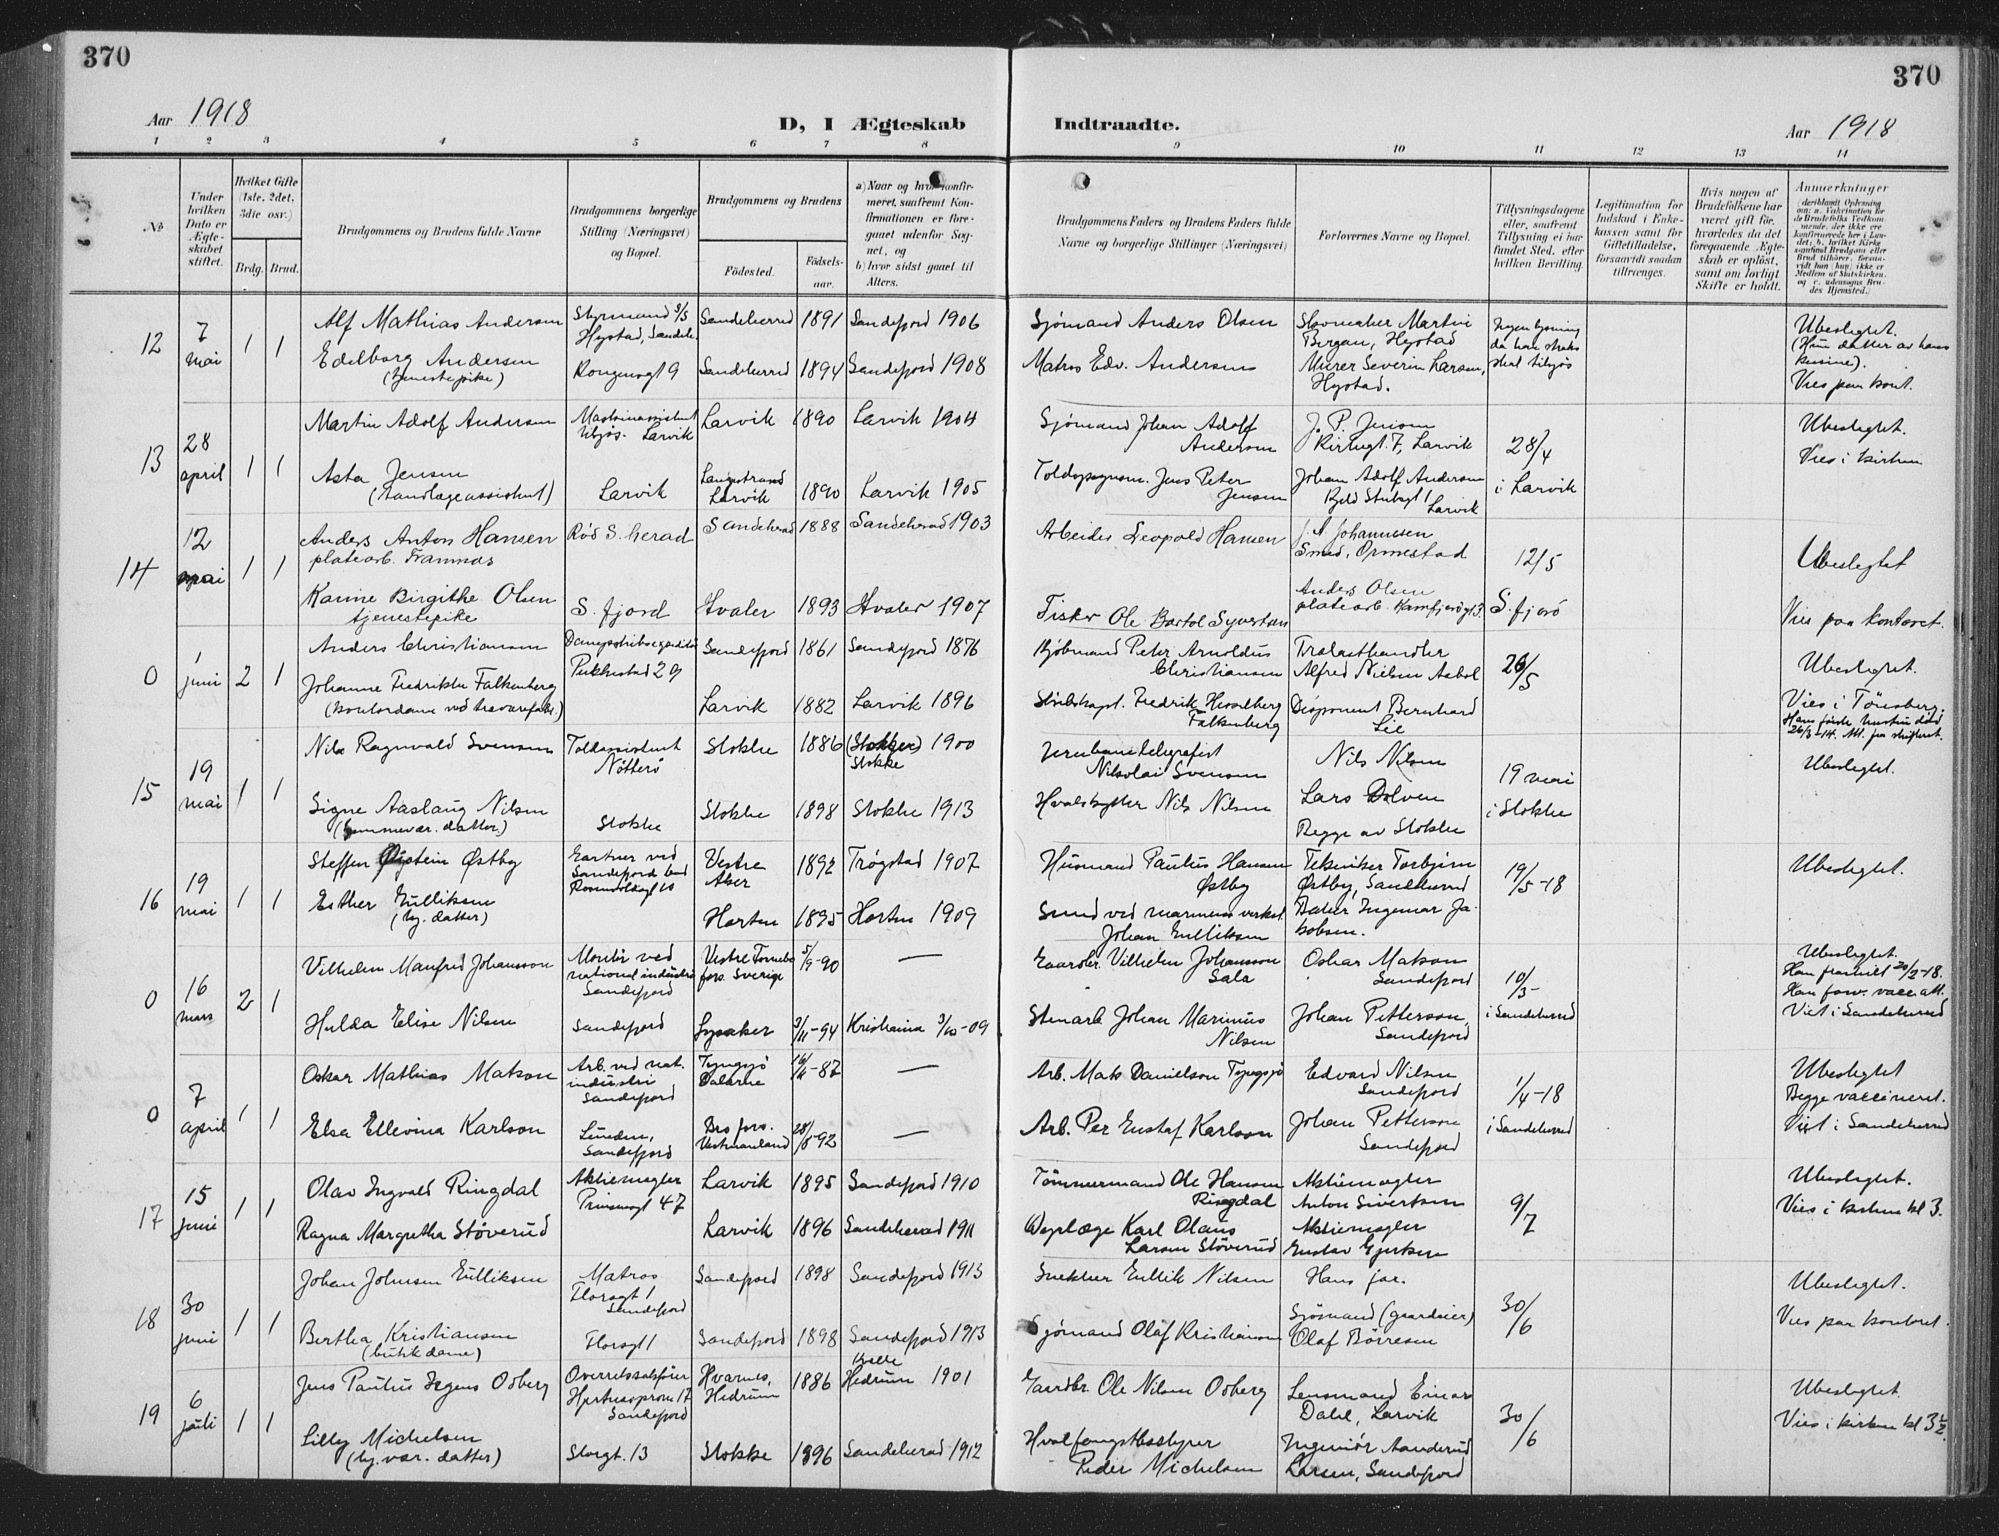 370
370
Aar 1918
D, I Ægteskab
Indtraadte.
Aar 1918
1 2 3 4 5 6 7 8 9 10 11 12 13 14
No
Under hvilken Dato er Ægteskabet stiftet.
Hvilket Gifte (1ste, 2det, 3die osv.)
Brdg. Brud.
Brudgommens og Brudens fulde Navne
Brudgommens borgerlige Stilling (Næringsvei) og Bopæl.
Brudgommens og Brudens
Födested.
Födsels-aar.
a) Naar og hvor konfirmeret, saafremt Konfirmationen er foregaaet udenfor Sognet, og
b) hvor sidst gaaet til Alters.
Brudgommens Faders og Brudens Faders fulde Navne og borgerlige Stillinger (Næringsvei)
Forlovernes Navne og Bopæl.
Tillysningsdagene eller, saafremt Tillysning ei har fundet Sted, efter hvilken Bevilling.
Legitimation for Indskud i Enkekassen samt for Giftetilladelse, forsaavidt saadan tiltrænges.
Hvis nogen af Brudefolkene har været gift før, hvorledes da det foregaaende Ægteskab er oplöst, samt om lovligt Skifte er holdt.
Anmerkninger
12
7 mai
1 1
Alf Mathias Andersen
Styrmand
Hystad, Sandeh.
Sandeherred 1891 Sandefjord 1906
Sjömand Anders Olsen
Skomaker Martin Bergan, Hystad
Ingen lysning da han straks skal tilsjøs
Ubeslegtet.
(Hun datter av hans kusine).
Edelborg Andersen
(tjenestepike)
Kongensgt 9
Sandeherred 1894 Sandefjord 1908
Matros Edv. Andersen
Murer Severin Larsen, Hystad.
Vies paa kont.
13
28 april
1 1
Martin Adolf Andersen
Maskinassistent tilsjøs. Larvik
Larvik 1890 Larvik 1904
Sjömand Johan Adolf Andersen
J. P. Jensen
Kirkegt. 7, Larvik
28/4
i Larvik
Ubeslegtet.
Vies i kirken
Asta Jensen
(tandlægeassistent)
Larvik
Langestrand Larvik 1890 Larvik 1905
Toldopsynsm. Jens Peter Jensen
Johan Adolf Andersen
Larvik
14
12 mai
1 1
Anders Anton Hansen
platearb. Framnæs
Rød S. herad
Sandeherad 1888 Sandeherad 1903
Arbeider Leopold Hansen
J. A Johannesen
Smed, Ormestad
12/5
S. fjord
Ubeslegtet
Karine Birgithe Olsen
tjenestepike
S. fjord
Hvaler 1893 Hvaler 1907
Fisker Ole Bartol Syvertsen
Anders Olsen
platearb. Kamfjordgt 3.
Vies paa kontoret.
0
1 juni
2 1
Anders Christiansen
Dampskibsexpeditør
Pukkestad 29
Sandefjord 1861 Sandefjord 1876
Kjøbmand Peter Arnoldus Christiansen
Trælasthandler
Alfred Nielsen Aabol
26/5
Ubeslegtet.
Johanne Fredrikke Falkenberg
(kontordame ved trævarefabr.)
Larvik 1882 Larvik 1896
Skibskapt. Fredrik Hesselberg Falkenberg
Disponent Bernhard Lie
Vies i Tönsberg.
Hans første hustru død 26/3-14. Att. fra skifteret.
15
19 mai
1 1
Nils Ragnvald Svensen
Toldassistent
Nøtterø
Stokke 1886 (Stokke) 1900
Stokke
Jernbanetelegrafist
Nikolai Svensen
Nils Nilsen
19 mai
i Stokke
Ubeslegtet.
Signe Aaslaug Nilsen
(hjemmevær. datter)
Stokke
Stokke 1898 Stokke 1913
Hvalskytter Nils Nilsen
Lars Dolven
Begge av Stokke
16
19 mai
1 1
Steffen Øistein Østby
Gartner ved Sandefjords bad
Vestre Aker 1892 Trøgstad 1907
Husmand Paulus Hansen Østby
Tekniker Torbjørn Østby, Sandeherred
19/5-18
Ubeslegtet.
Esther Gulliksen
(hj. datter)
Horten 1895 Horten 1909
Smed ved marinens verkst. Johan Gulliksen
Baker Ingemar Jakobsen.
0
16 mars
2 1
Vilhelm Manfred Johansson
Montör ved national industri Sandefjord
5/9-90
—
Gaardbr. Vilhelm Johansson
Sala
Oskar Matson
Sandefjord
10/3-
i Sandeherred
Ubeslegtet.
Han fraskilt 20/2-18.
Han forev. vacc. att.
Viet i Sandeherred
Hulda Elise Nilsen
Sandefjord
Lysaker 3/11-94 Kristiania 3/10-09
Stenarb Johan Marinius Nilsen
Johan Petterson
Sandefjord
0
7 april
1 1
Oskar Mathias Matson
Arb. ved nat. industri Sandefjord
Tyngsjö Dalarne 16/11-87
—
Arb. Mats Danielson Tyngsjö
Edvard Nilsen
Sandefjord
1/4-18
i Sandeherred
Ubeslegtet
Begge vaccineret.
Viet i Sandeherred
Elsa Ellevina Karlson
Linden, Sandefjord
Bro fors. Vestmanland 28/8-92
—
Arb. Per Gustaf Karlson
Johan Petterson
Sandefjord
17
15 juni
1 1
Olav Ingvald Ringdal
Aktiemegler
Prinsensgt 47
Larvik 1895 Sandefjord 1910
Tömmermand Ole Hansen Ringdal
Aktiemægler
Anton Sivertsen
9/7
Ubeslegtet.
Vies i kirken kl 3.
Ragna Margrethe Støverud
Larvik 1896 Sandeherred 1911
Karl Olaus Larsen Støverud
Aktiemegler
Gustav Gjertsen
18
30 juni
1 1
Johan Johnsen Gulliksen
Matros
Storgt 1
Sandefjord
Sandefjord 1898 Sandefjord 1913
Snekker Gullik Nilsen
Hans far.
30/6
Ubeslegtet.
Vies paa kontoret.
Bertha Kristiansen
(butikdame)
Storgt 1
Sandefjord 1898 Sandefjord 1913
Sjømand Olaf Kristiansen
Sjömand (gaardeier)
Olaf Börresen
19
6 juli
1 1
Jens Paulus Jegens Osberg
Overretssakfører
17 Sandefjord
Hvarnes, Hedrum 1886 Hedrum 1901
Gaardbr. Ole Nilsen Osberg
Lensmand Einar Dahl, Larvik
30/6
Ubeslegtet.
Vies i kirken kl 3½.
Lilly Michelsen
(hj. vær. datter)
Storgt. 13
Stokke 1896 Sandeherad 1912
Hvalfangstbestyrer
Peder Michelsen
Ingeniör Aanderud Larsen, Sandefjord